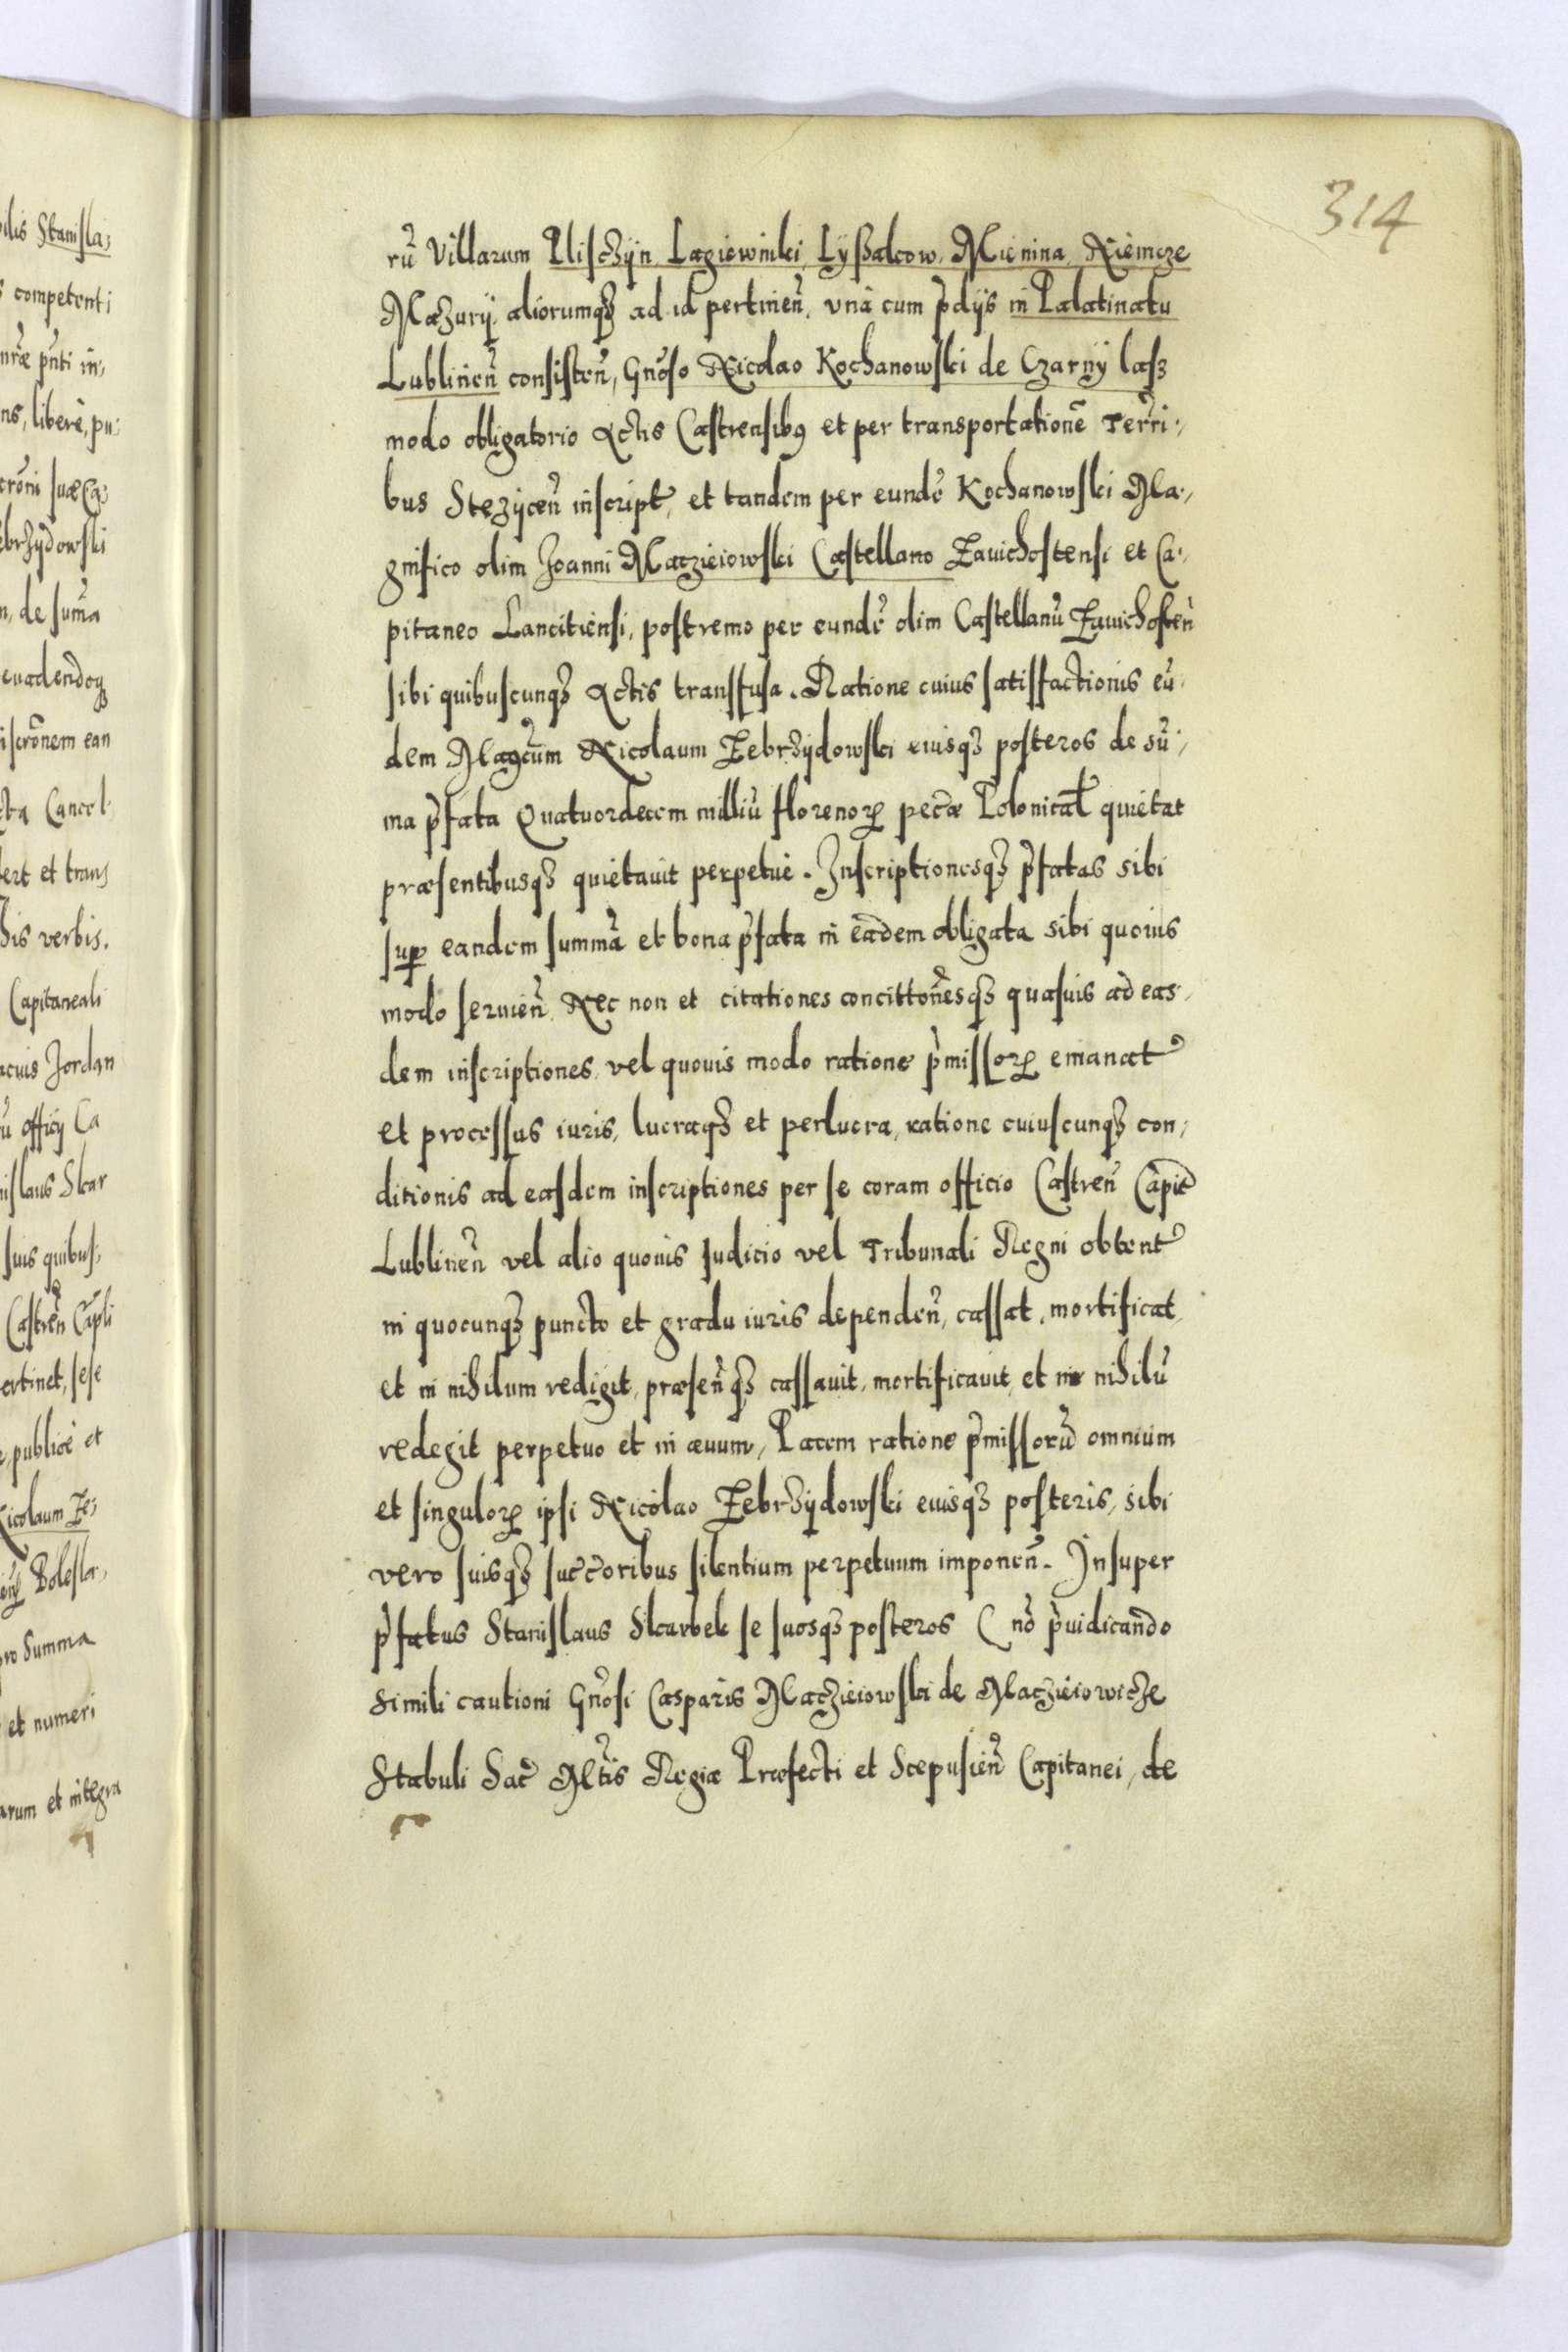 314
rũ Villarum Plischÿn Lagiewniki Lyßakow, Mienina, Niemcze
Mazurÿ aliorumqȝ ad id pertineñ. vnà cum p̃dÿs in Palatinatu
Lublineñ consisteñ, Gñoso Nicolao Kochanowski de Czarnÿ lasz
modo obligatorio Actis Castrensibꝰ et per transportationẽ Terri-,
bus Stezÿceñ inscript̃, et tandem per eundẽ Kochanowski Ma-,
gnifico olim Joanni Maczieiowski Castellano Zauichostensi et Ca-,
pitaneo Lancitiensi, postremo per eundẽ olim Castellanũ Zauichosteñ
sibi quibuscunqȝ Actis transfusa. Ratione cuius satisfactionis eũ-
dem Magcũm Nicolaum Zebrzÿdowski eiusqȝ posteros de sũ-,
ma p̃fata Quatuordecem milliũ florenoꝝ pecc̃æ Polonical̃ quietat
præsentibusqȝ quietauit perpetuè. Inscriptionesqȝ p̃fatas sibi
suꝑ eandem summã et bona p̃fata in eãdem obligata sibi quouis
modo seruieñ, Nec non et citationes concittoñesqȝ quasuis ad eas-
dem inscriptiones, vel quouis modo ratione p̃missoꝝ emanat̃
et processus iuris, lucraqȝ et perlucra, ratione cuiuscunqȝ con-,
ditionis ad easdem inscriptiones per se coram officio Castreñ Capit̃
Lublineñ vel alio quouis Judicio vel Tribunali Regni obtent̃
in quocunqȝ puncto et gradu iuris dependeñ, cassat, mortificat
et in nihilum redigit, præseñqȝ cassauit, mortificauit, et in nihilũ
redegit perpetuo et in æuum, Pacem ratione p̃missorũ omnium
et singuloꝝ ipsi Nicolao Zebrzÿdowski eiusqȝ posteris, sibi
vero suisqȝ succ̃oribus silentium perpetuum imponeñ. Insuper
p̃fatus Stanislaus Skarbek se suosqȝ posteros (nõ p̃iudicando
simili cautioni Gñosi Casparis Maczieiowski de Maczieiowicze
Stabuli Sac̃ Mt̃is Regiæ Præfecti et Scepusieñ Capitanei, de
ilis Stanisla-,
competenti
nr̃æ pñti in-,
ns, liberè, pu-
Zebrzÿdowski
de sum̃a
euadendoq
iscrõnem ean
cta Cancel-
ert et trans
his verbis.
Capitaneali
acuis Jordan
officÿ Ca
nislaus Skar
suis quibus-,
Castreñ Capli
ertinet, sese
publicè et
Nicolaum Ze-,
Bolesla-,
ro summa
et numeri
arum et integra